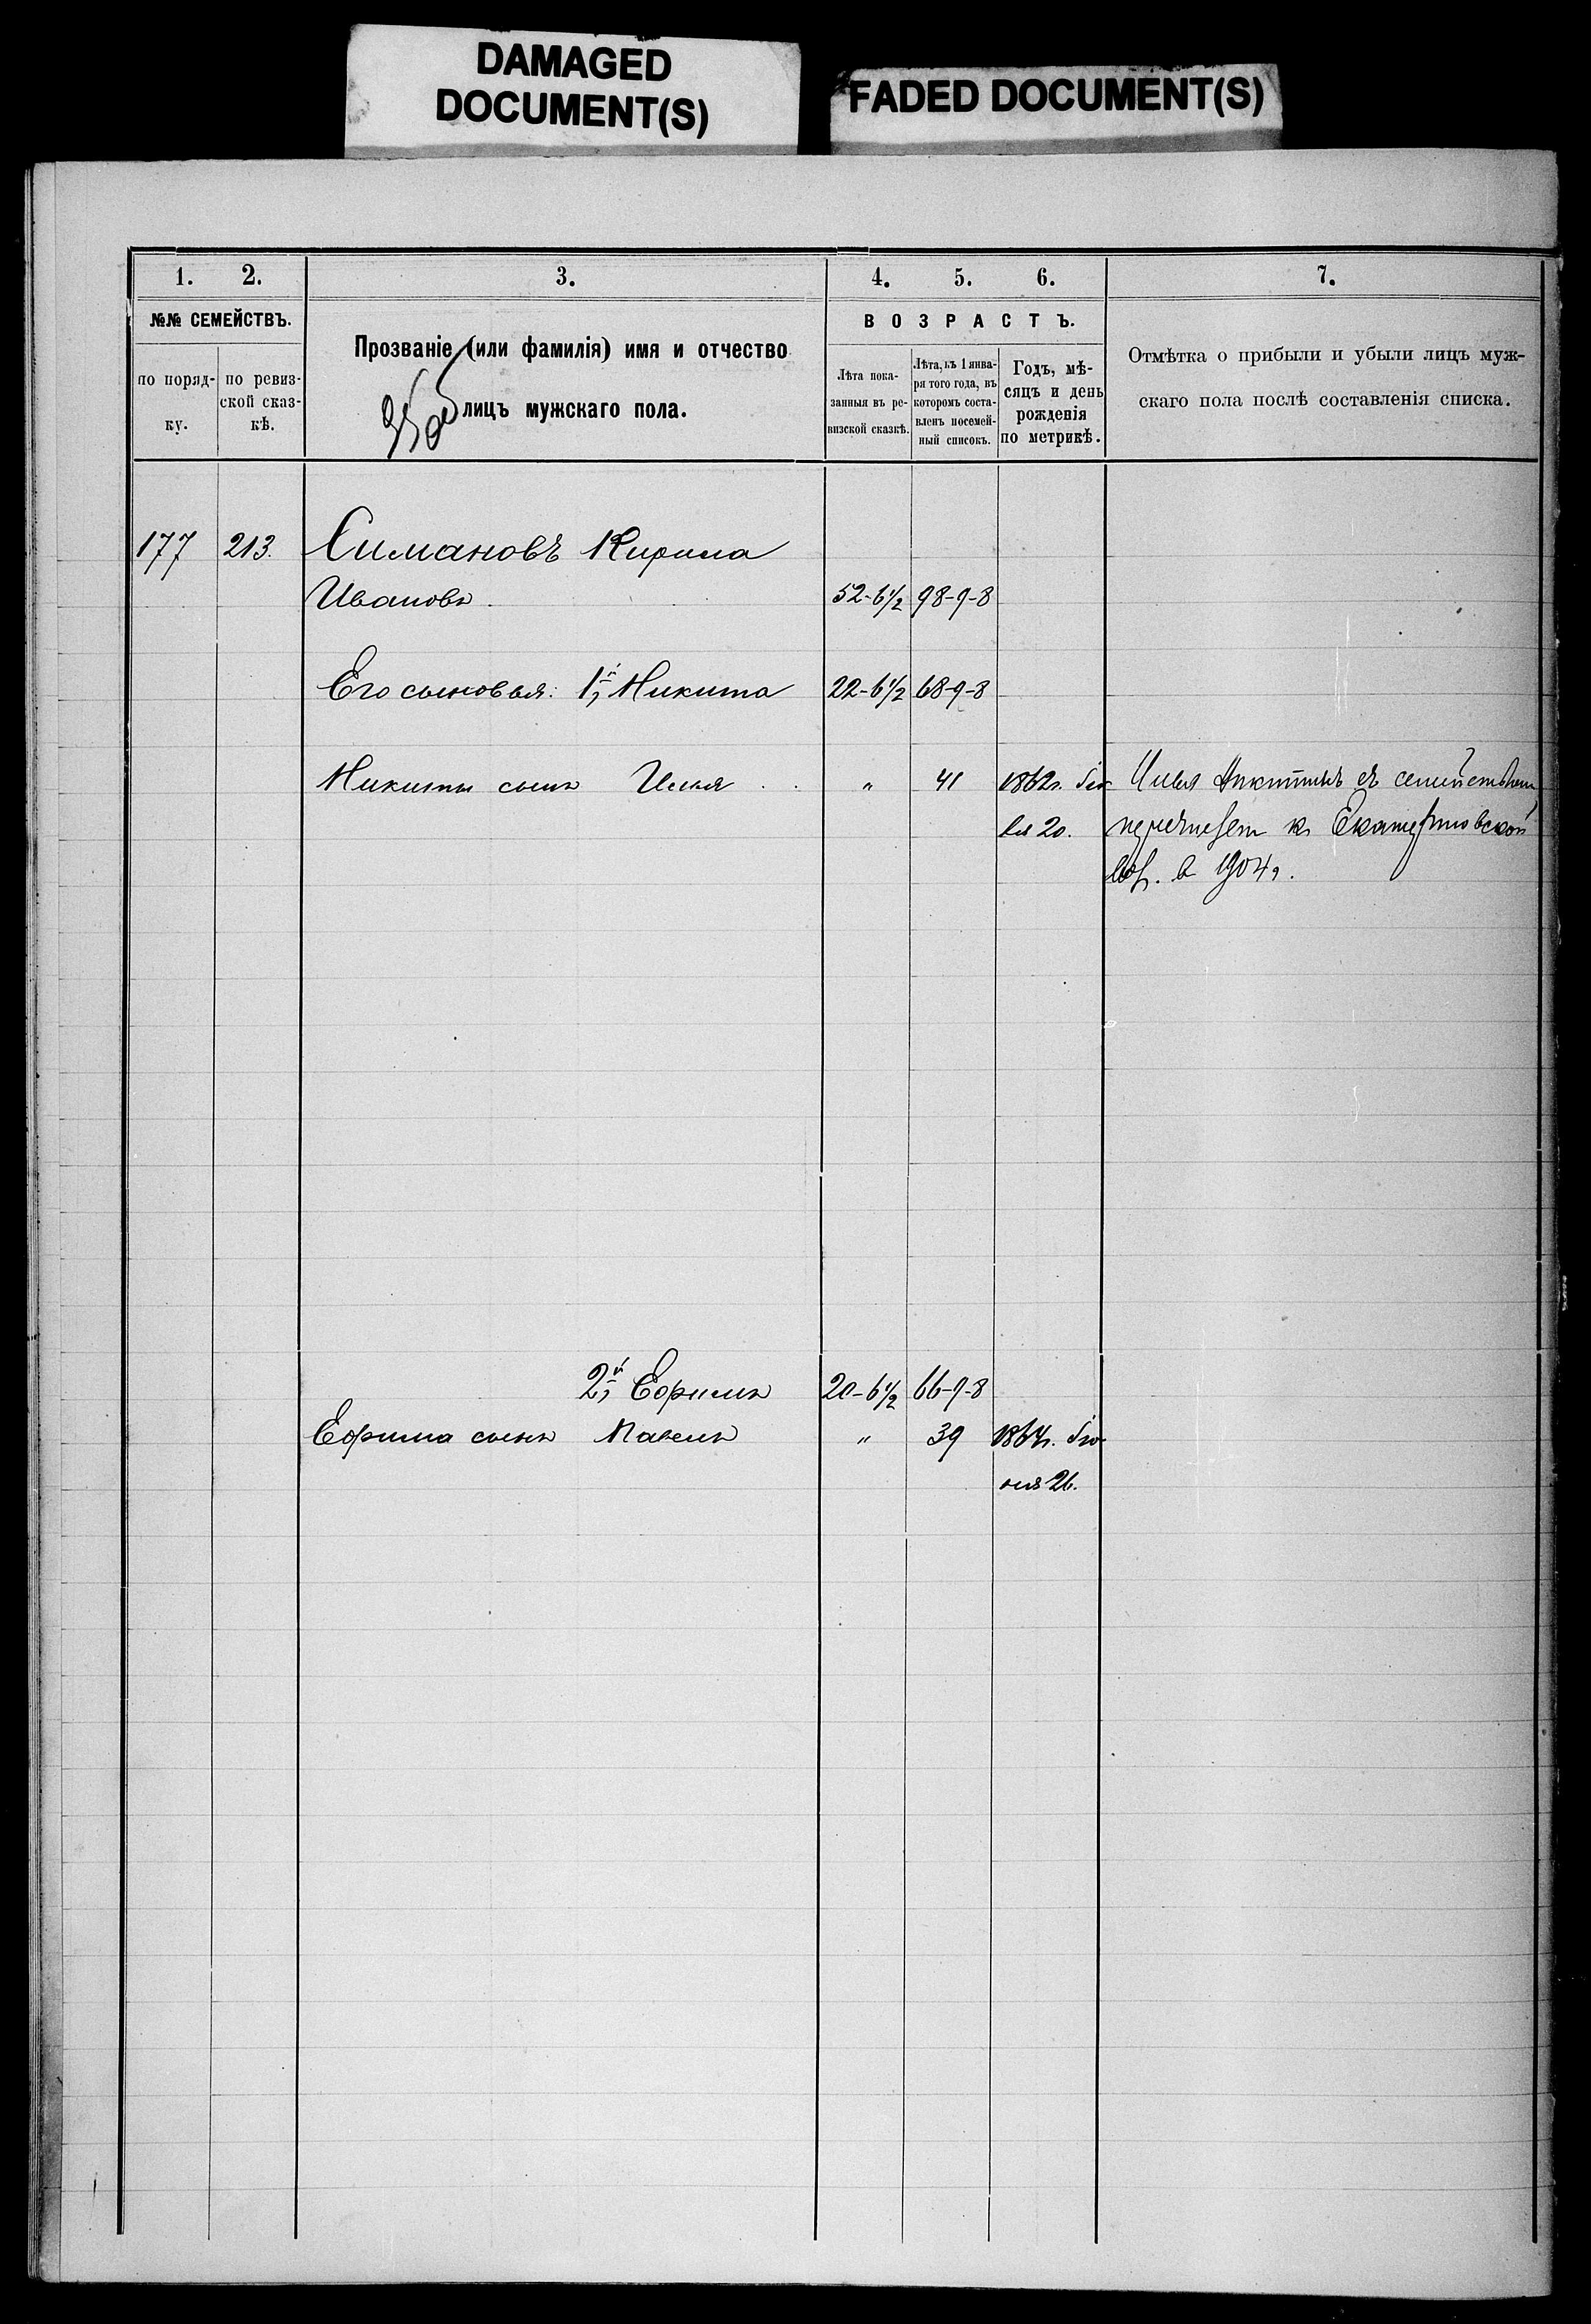 DAMAGED
DOCUMENT(S)
FADED DOCUMENT(S)
1. 2. 3. 4. 5. 6. 7.
№№ СЕМЕЙСТВЪ.
по поряд-
ку.
по ревиз-
ской сказ-
кѣ.
Прозваніе (или фамилія) имя и отчество
лицъ мужскаго пола.
ВОЗРАСТЪ.
Лѣта пока-
занныя въ ре-
визской сказкѣ.
Лѣта, къ 1 янва-
ря того года, въ
которомъ соста-
вленъ посемей-
ный списокъ.
Годъ, мѣ-
сяцъ и день
рожденія
по метрикѣ.
Отмѣтка о прибыли и убыли лицъ муж-
скаго пола послѣ составленія списка.
177 213. Симановъ Кирила
Ивановъ. 52-6½ 98-9-8
Его сыновья: 1й, Никита 22-6½ 68-9-8
Никиты сынъ Илья " 41 1862г. Iю-
ля 20.
Илья Никитинъ съ семействомъ
перечисленъ къ Екатериновской
вол. въ 1904г.
2й, Ефимъ 20-6½ 66-9-8
Ефима сынъ Павелъ " 39 1864г. Iю-
ня 26.